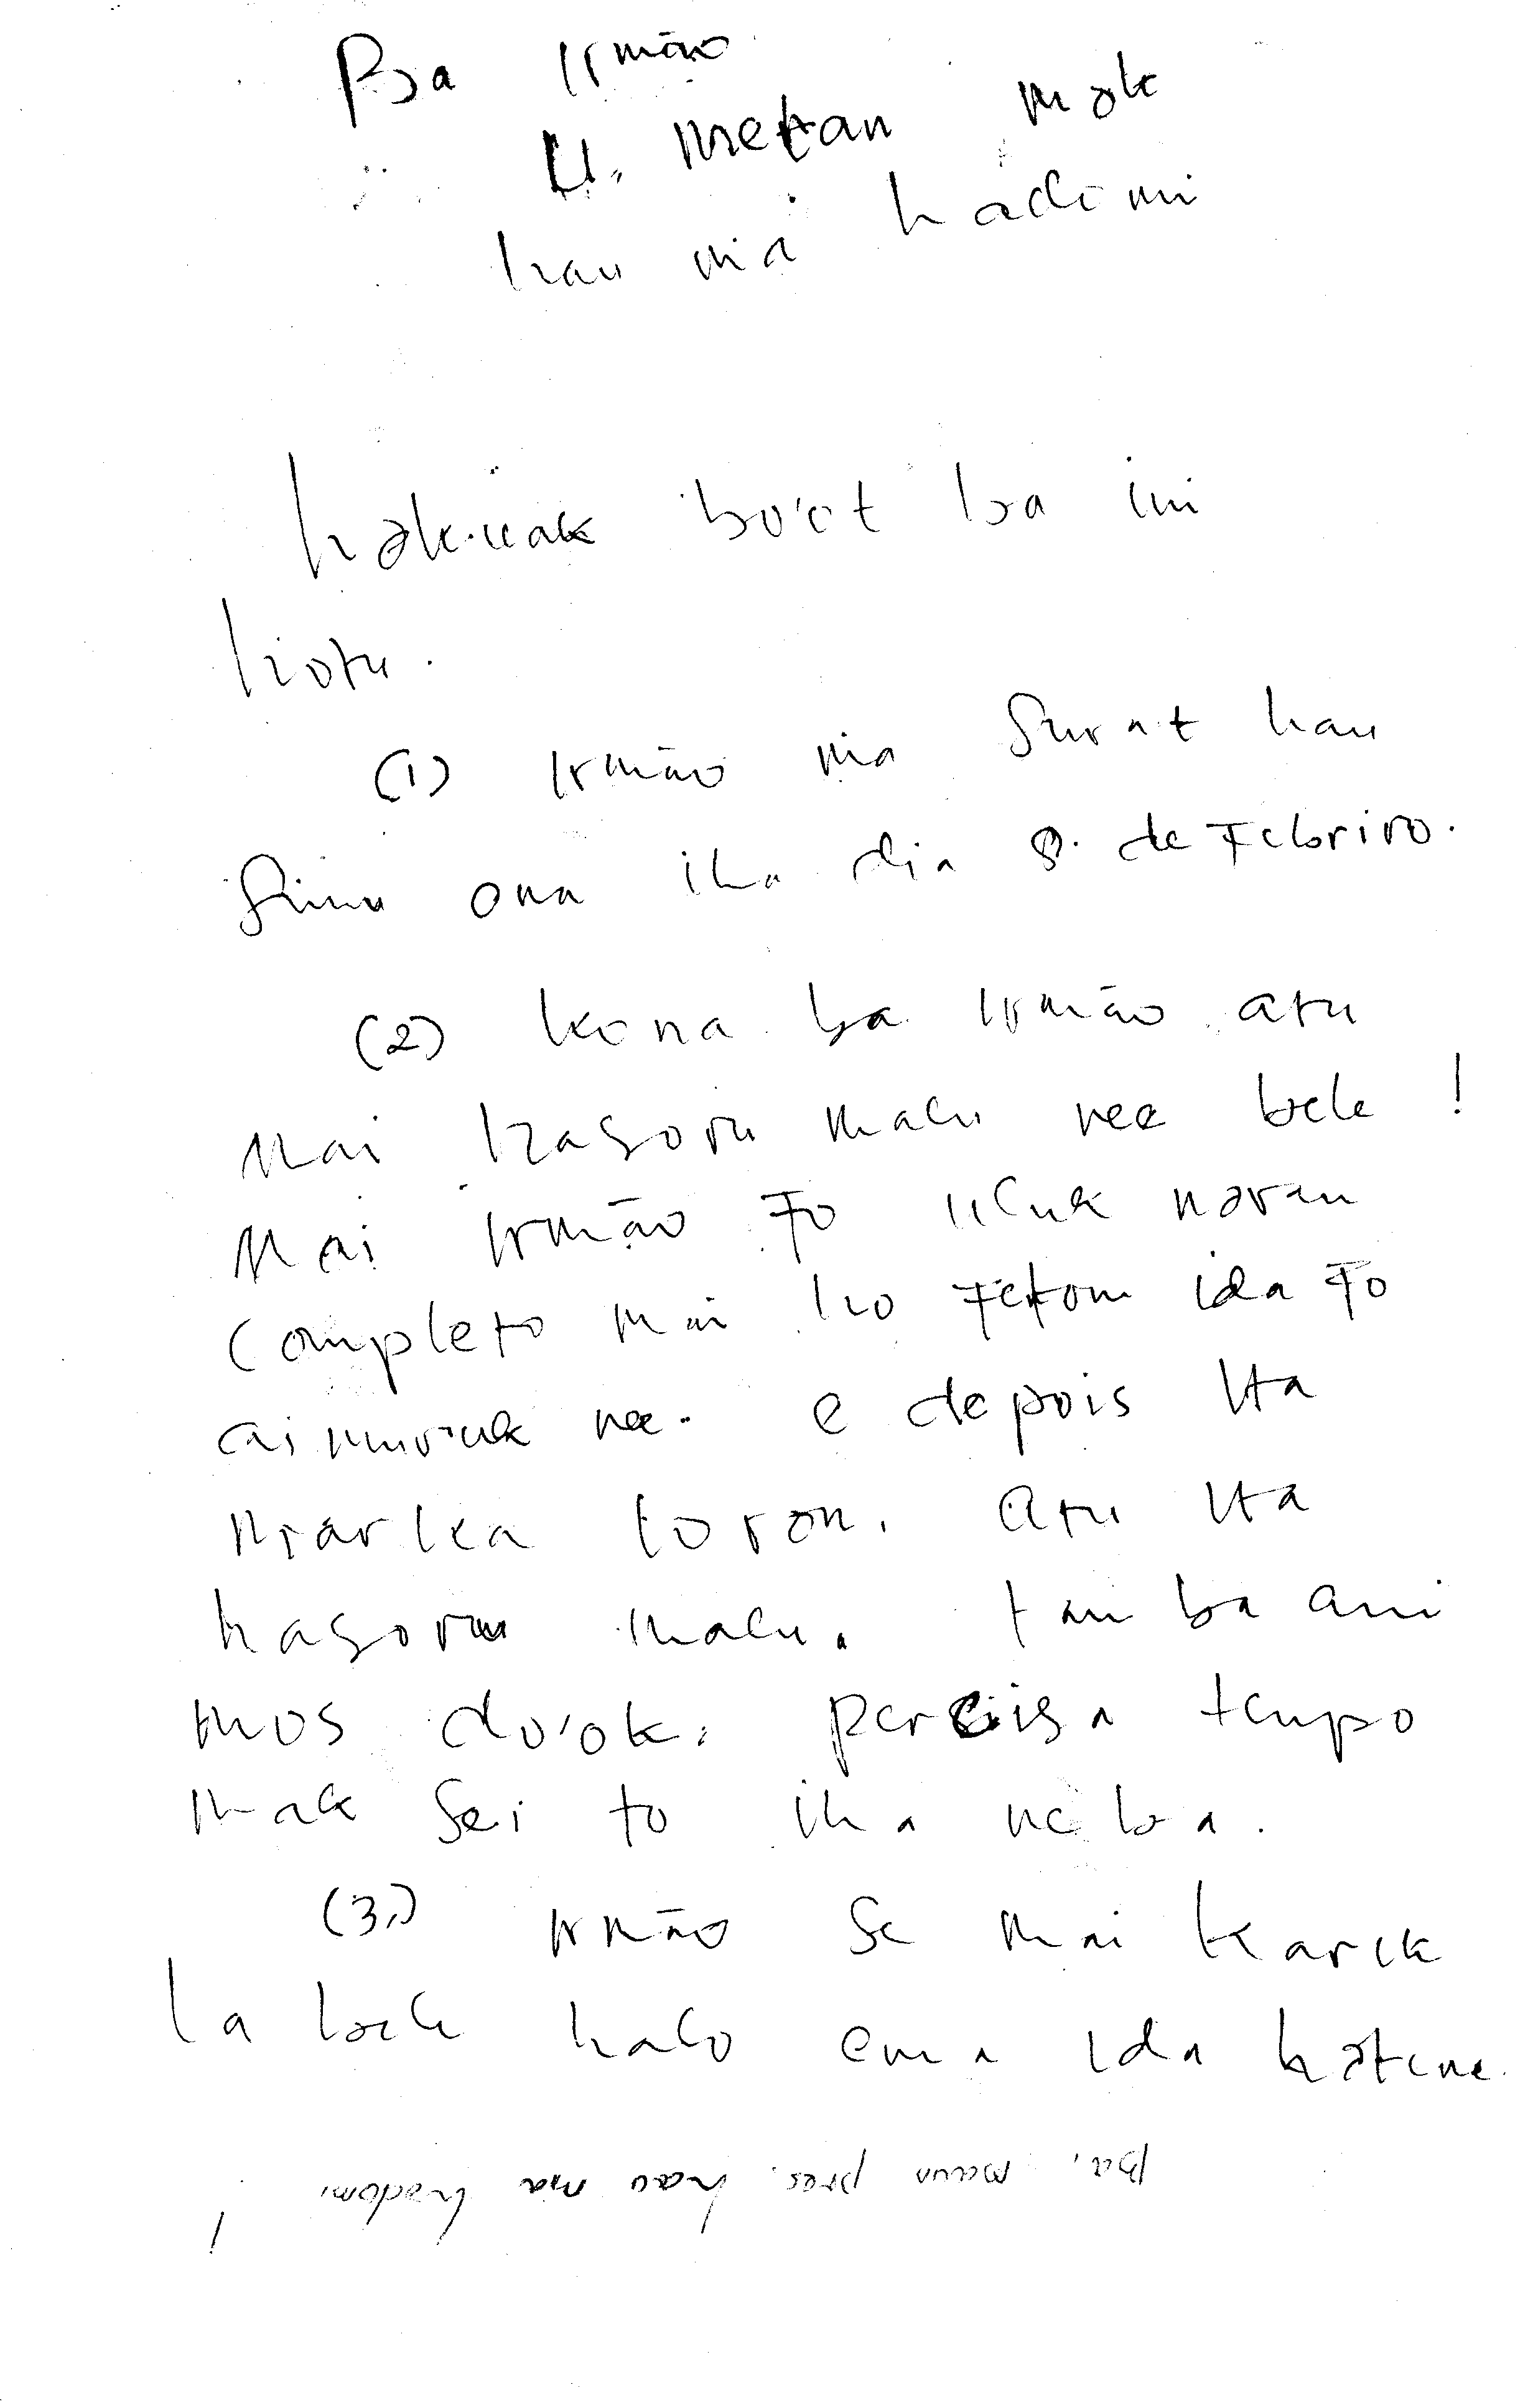 Ba Irmão
U. Metan mak
hau nia hadomi
hakuak bo'ot ba imi
hotu.
(1) Irmão nia Surat hau
Simu ona iha dia 8. de Febriro.
(2) kona ba Irmão atu
mai hasoru malu nee bele !
Mai Irmão fo uluk naran
Completo mai ho Feton ida fo
aimoruk nee. e depois Ita
marka loron. atu Ita
hasoru malu. tamba ami
mos do'ok. percisa tempo
mak Sei to iha neba.
(3.) Irmão Se mai karik
la bele halo ema ida hatene.
Ba, maun pres. hau nia hadomi